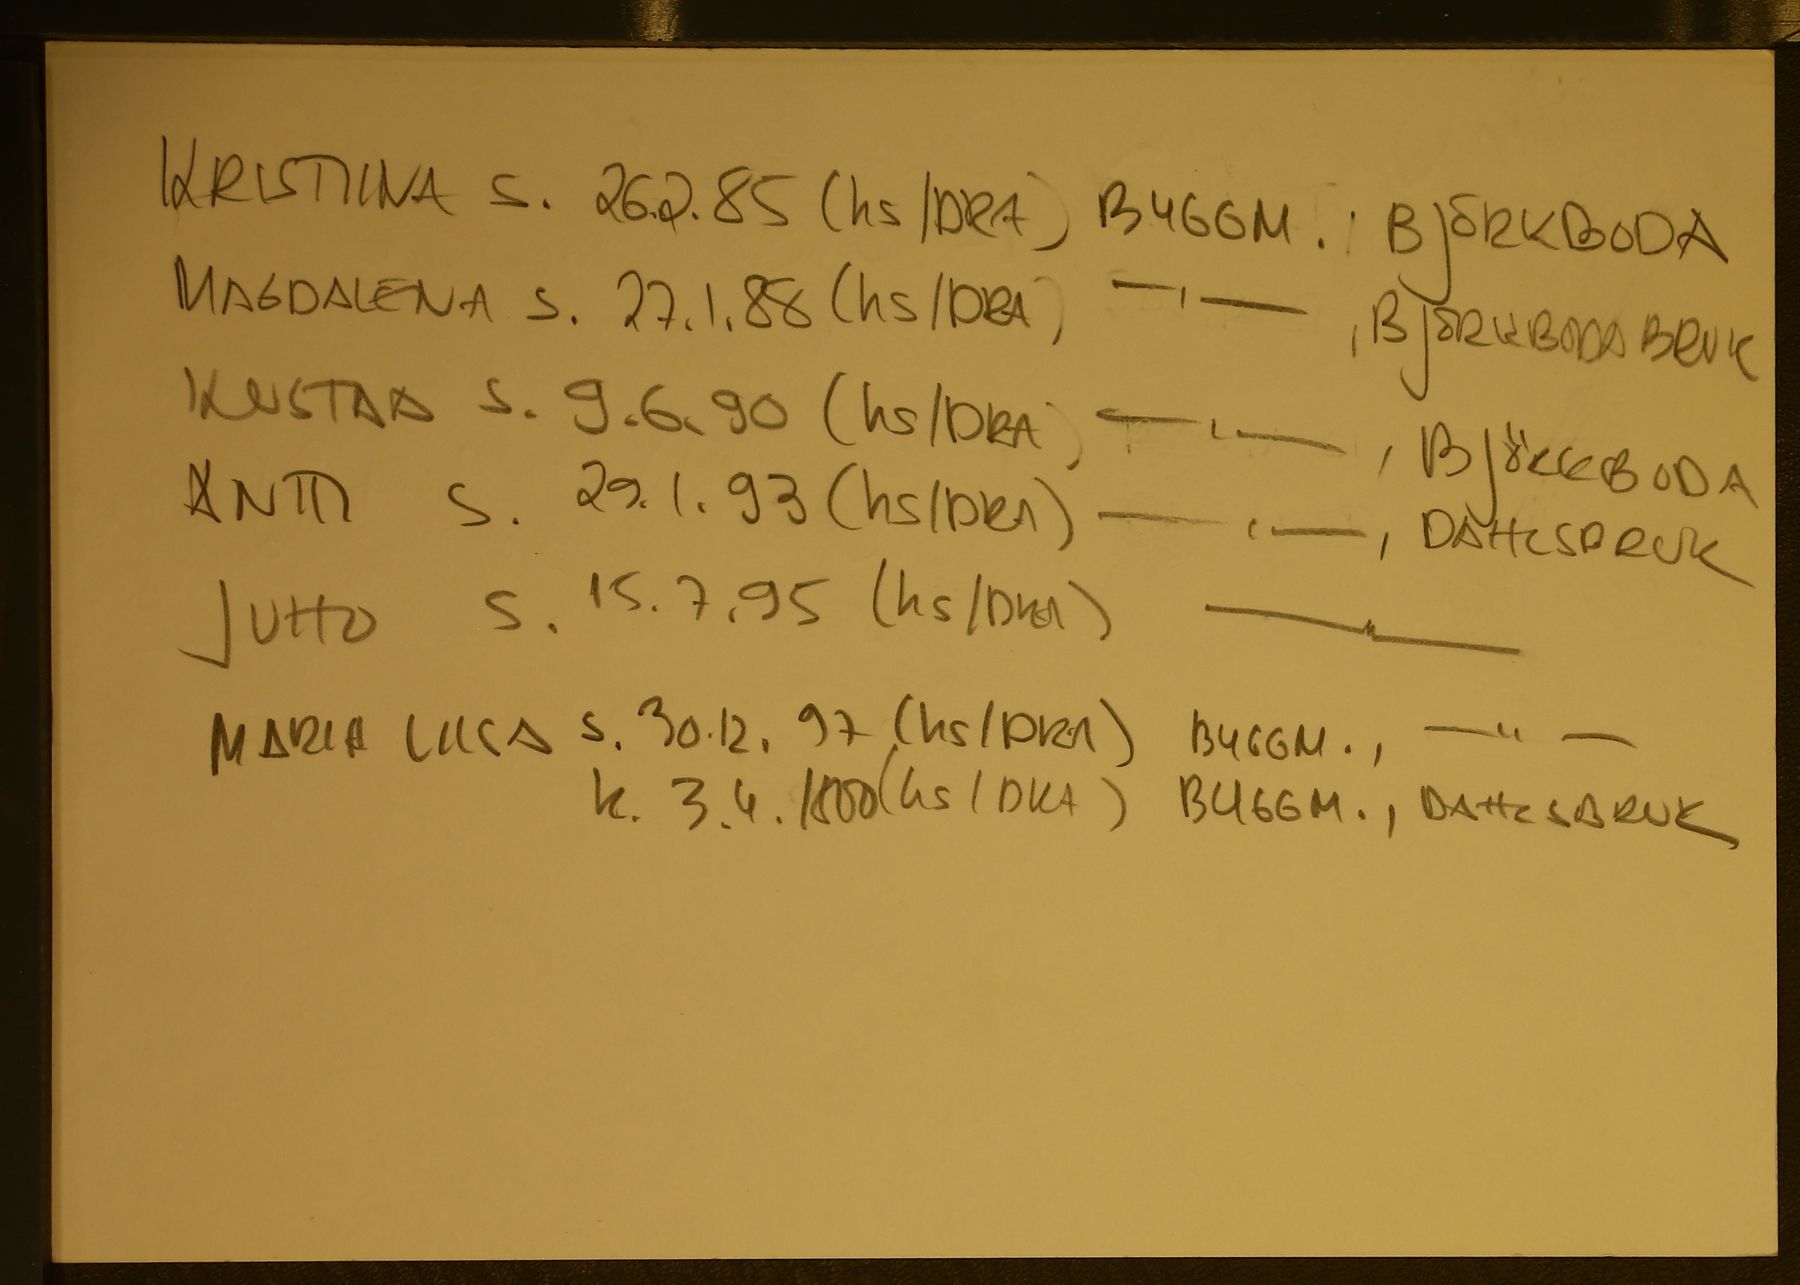 KRISTIINA S. 26.2.85 (hs/DRA) BYGGM., BJÖRKBODA
MAGDALENA S. 27.1.88 (hs/DRA) —"—, BJÖRKBODA BRUK
KUSTAA S. 9.6.90 (hs/DRA) —"—, BJÖRKBODA
ANTTI S. 29.1.93 (hs/DRA) —"—, DAHLSBRUK
JUHO S. 15.7.95 (hs/DRA) —"—
MARIA LIISA S. 30.12.97 (hs/DRA) BYGGM., —"—
k. 3.4.1800 (hs/DRA) BYGGM., DAHLSBRUK